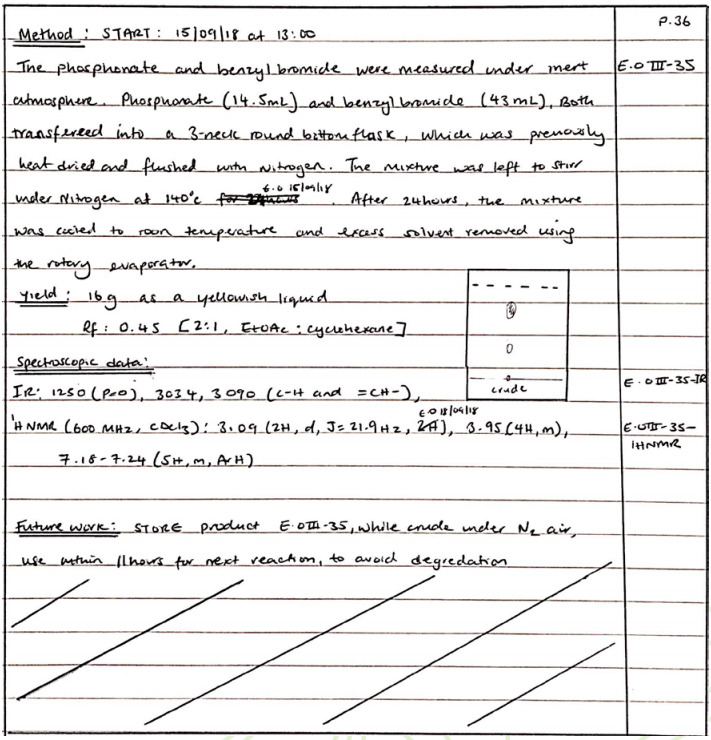 P.36
Method : START : 15/09/18 at 13:00
The phosphonate and benzyl bromide were measured under inert
E.O III-35
atmosphere. Phosphonate (14.5mL) and benzyl bromide (43 mL), Both
transfereed into a 3-neck round bottom flask, which was previously
heat dried and flushed with Nitrogen. The mixture was left to stirr
E.O 15/09/18
under Nitrogen at 140°c for 24hours. After 24hours, the mixture
was cooled to room temperature and excess solvent removed using
the rotary evaporator.
Yield : 16g as a yellowish liquid
Rf : 0.45 [2:1, EtOAc : cyclohexane]
crude
Spectroscopic data:
E.O III-35-IR
IR: 1250 (P=O), 3034, 3090 (C-H and =CH-),
E.O 18/09/18
¹H NMR (600 MHz, CDCl3): 3.09 (2H, d, J= 21.9Hz, 2H), 3.95 (4H, m),
E.OIII-35-
1HNMR
7.18-7.24 (5H, m, ArH)
Future work: STORE product E.OIII-35, while crude under N2 air,
use within 11hours for next reaction, to avoid degredation